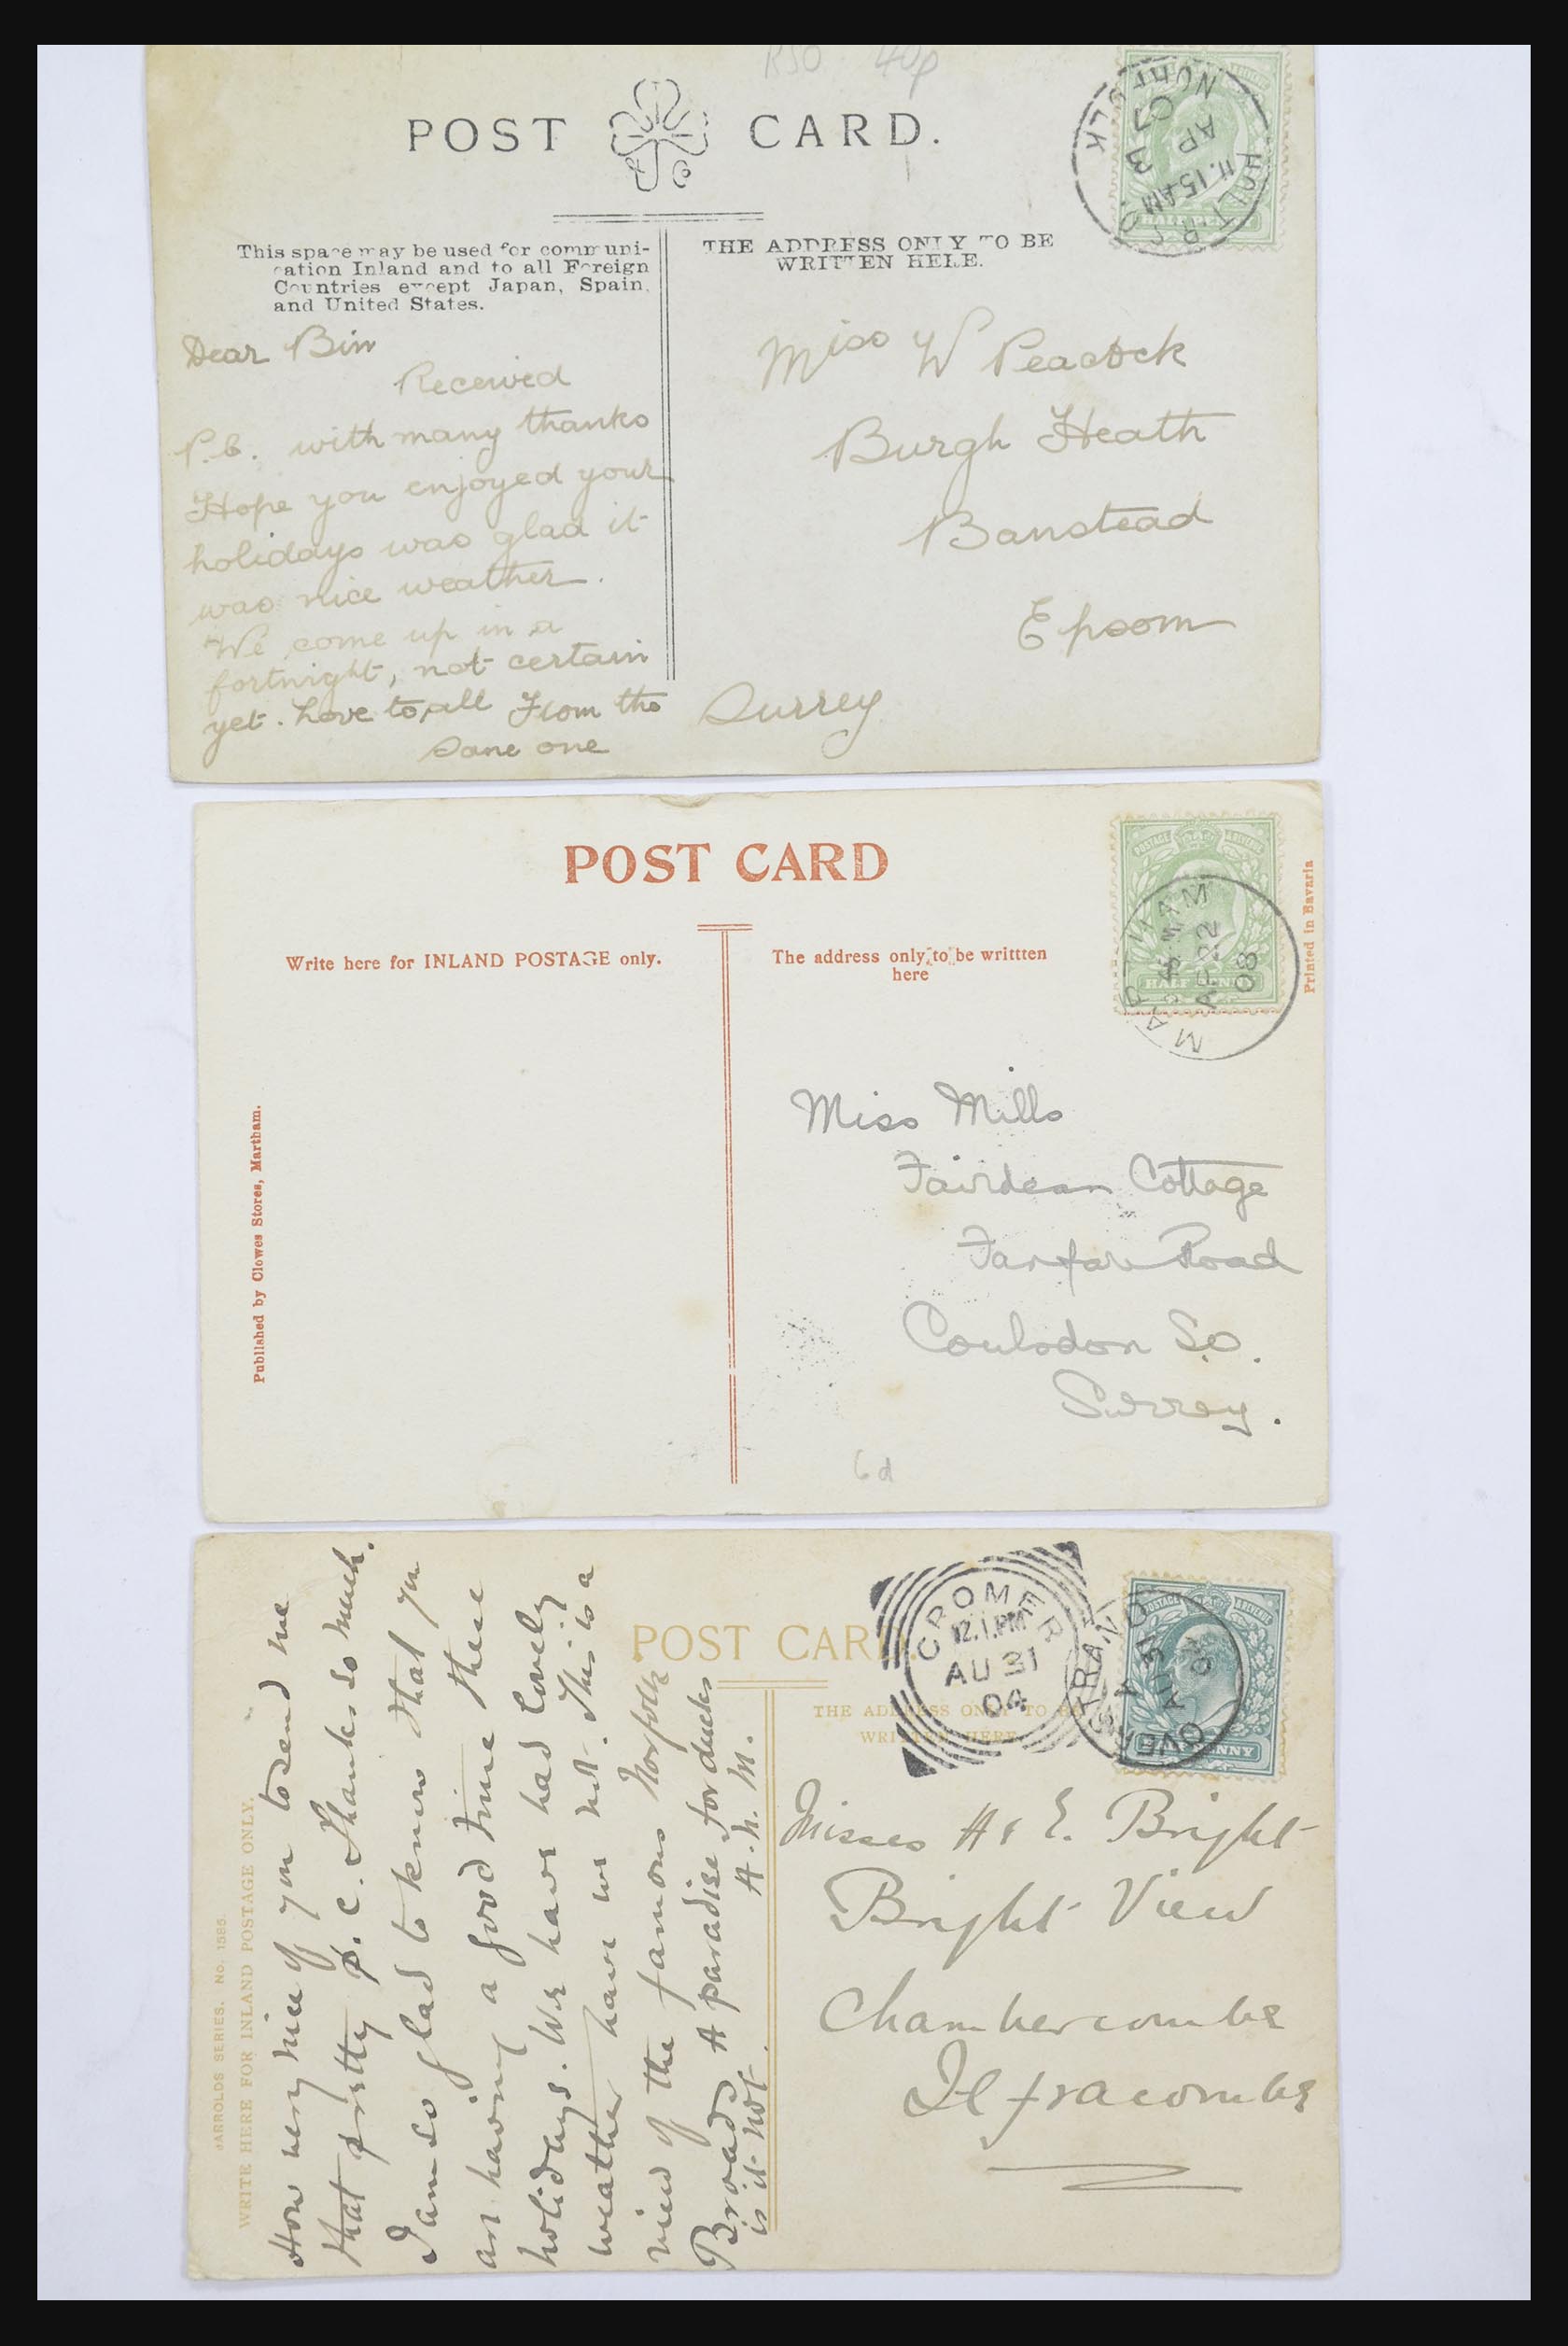 RSO 40p
POST CARD.
HOLT R.S.O.
11.15AM
AP 3
07
NORFOLK
HALF PENNY
This space may be used for communi-
cation Inland and to all Foreign
Countries except Japan, Spain,
and United States.
THE ADDRESS ONLY TO BE
WRITTEN HERE.
Dear Bin
Received
P.C. with many thanks
Hope you enjoyed your
holidays was glad it
was nice weather.
We come up in a
fortnight, not certain
yet. Love to all From the
Same one
Miss W Peacock
Burgh Heath
Banstead
Epsom
Surrey
POST CARD
Write here for INLAND POSTAGE only.
The address only to be writtten
here
POSTAGE REVENUE
HALF PENNY
MARTHAM
AP 22
08
Printed in Bavaria
Published by Clowes Stores, Martham.
Miss Mills
Fairdean Cottage
Road
Coulsdon S.O.
Surrey.
6d
POST CARD.
THE ADDRESS ONLY TO BE
WRITTEN HERE
CROMER
12.1.PM
AU 31
04
OVERSTRAND
AU 31
04
POSTAGE REVENUE
HALF PENNY
JARROLDS SERIES. No. 1585.
WRITE HERE FOR INLAND POSTAGE ONLY.
How very nice of you to send me
that pretty p.c. Thanks so much.
I am so glad to know that you
are having a good time these
holidays. We have had lovely
weather have we not. This is a
view of the famous Norfolk
Broads A paradise for ducks
is it not. A.N.M.
Misses A & E. Bright
Bright View
Chambercombe
Ilfracombe